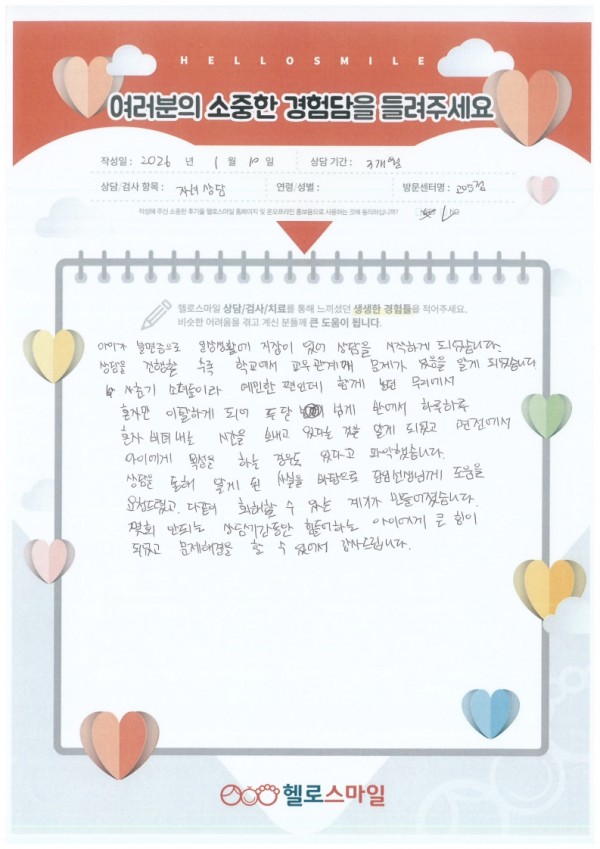 HELLOSMILE
여러분의 소중한 경험담을 들려주세요
작성일 : 2026 년 1 월 10 일 상담 기간 : 3개월
상담/검사 항목 : 자녀 상담 연령/성별 : 방문센터명 :
작성해 주신 소중한 후기를 헬로스마일 홈페이지 및 온오프라인 홍보용으로 사용하는 것에 동의하십니까? YES NO
헬로스마일 상담/검사/치료를 통해 느끼셨던 생생한 경험들을 적어주세요.
비슷한 어려움을 겪고 계신 분들께 큰 도움이 됩니다.
아이가 불면증으로 일상생활에 지장이 있어 상담을 시작하게 되었습니다.
상담을 진행할 추록 학교에서 교우관계에 문제가 있음을 알게 되었습니다.
사춘기 소녀들이라 예민한 편인데 함께 놀던 무리에서
혼자만 이탈하게 되어 두달 넘게 반에서 하루하루
혼자 버텨내는 시간을 보내고 있다는 것을 알게 되었고 면전에서
아이에게 욕설을 하는 경우도 있다고 파악했습니다.
상담을 통해 알게 된 사실을 바탕으로 담임선생님께 도움을
요청드렸고, 다같이 화해할 수 있는 계기가 만들어졌습니다.
몇회 안되는 상담시간동안 힘들어하는 아이에게 큰 힘이
되었고 문제해결을 할 수 있어서 감사드립니다.
헬로스마일